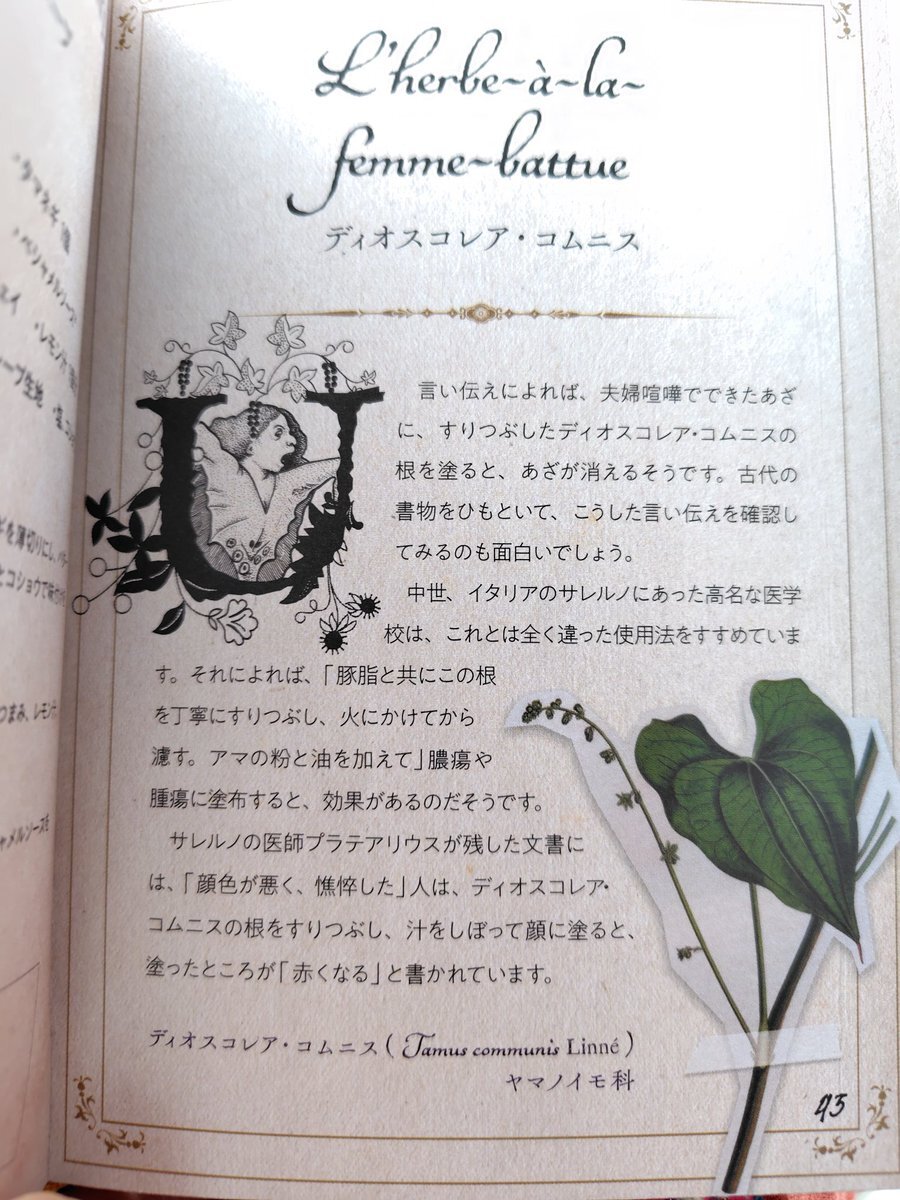 L'herbe~à~la~
femme~battue
ディオスコレア・コムニス
U
言い伝えによれば、夫婦喧嘩でできたあざ
に、すりつぶしたディオスコレア・コムニスの
根を塗ると、あざが消えるそうです。古代の
書物をひもといて、こうした言い伝えを確認し
てみるのも面白いでしょう。
中世、イタリアのサレルノにあった高名な医学
校は、これとは全く違った使用法をすすめていま
す。それによれば、「豚脂と共にこの根
を丁寧にすりつぶし、火にかけてから
濾す。アマの粉と油を加えて」膿瘍や
腫瘍に塗布すると、効果があるのだそうです。
サレルノの医師プラテアリウスが残した文書に
は、「顔色が悪く、憔悴した」人は、ディオスコレア・
コムニスの根をすりつぶし、汁をしぼって顔に塗ると、
塗ったところが「赤くなる」と書かれています。
ディオスコレア・コムニス(Tamus communis Linné)
ヤマノイモ科
93